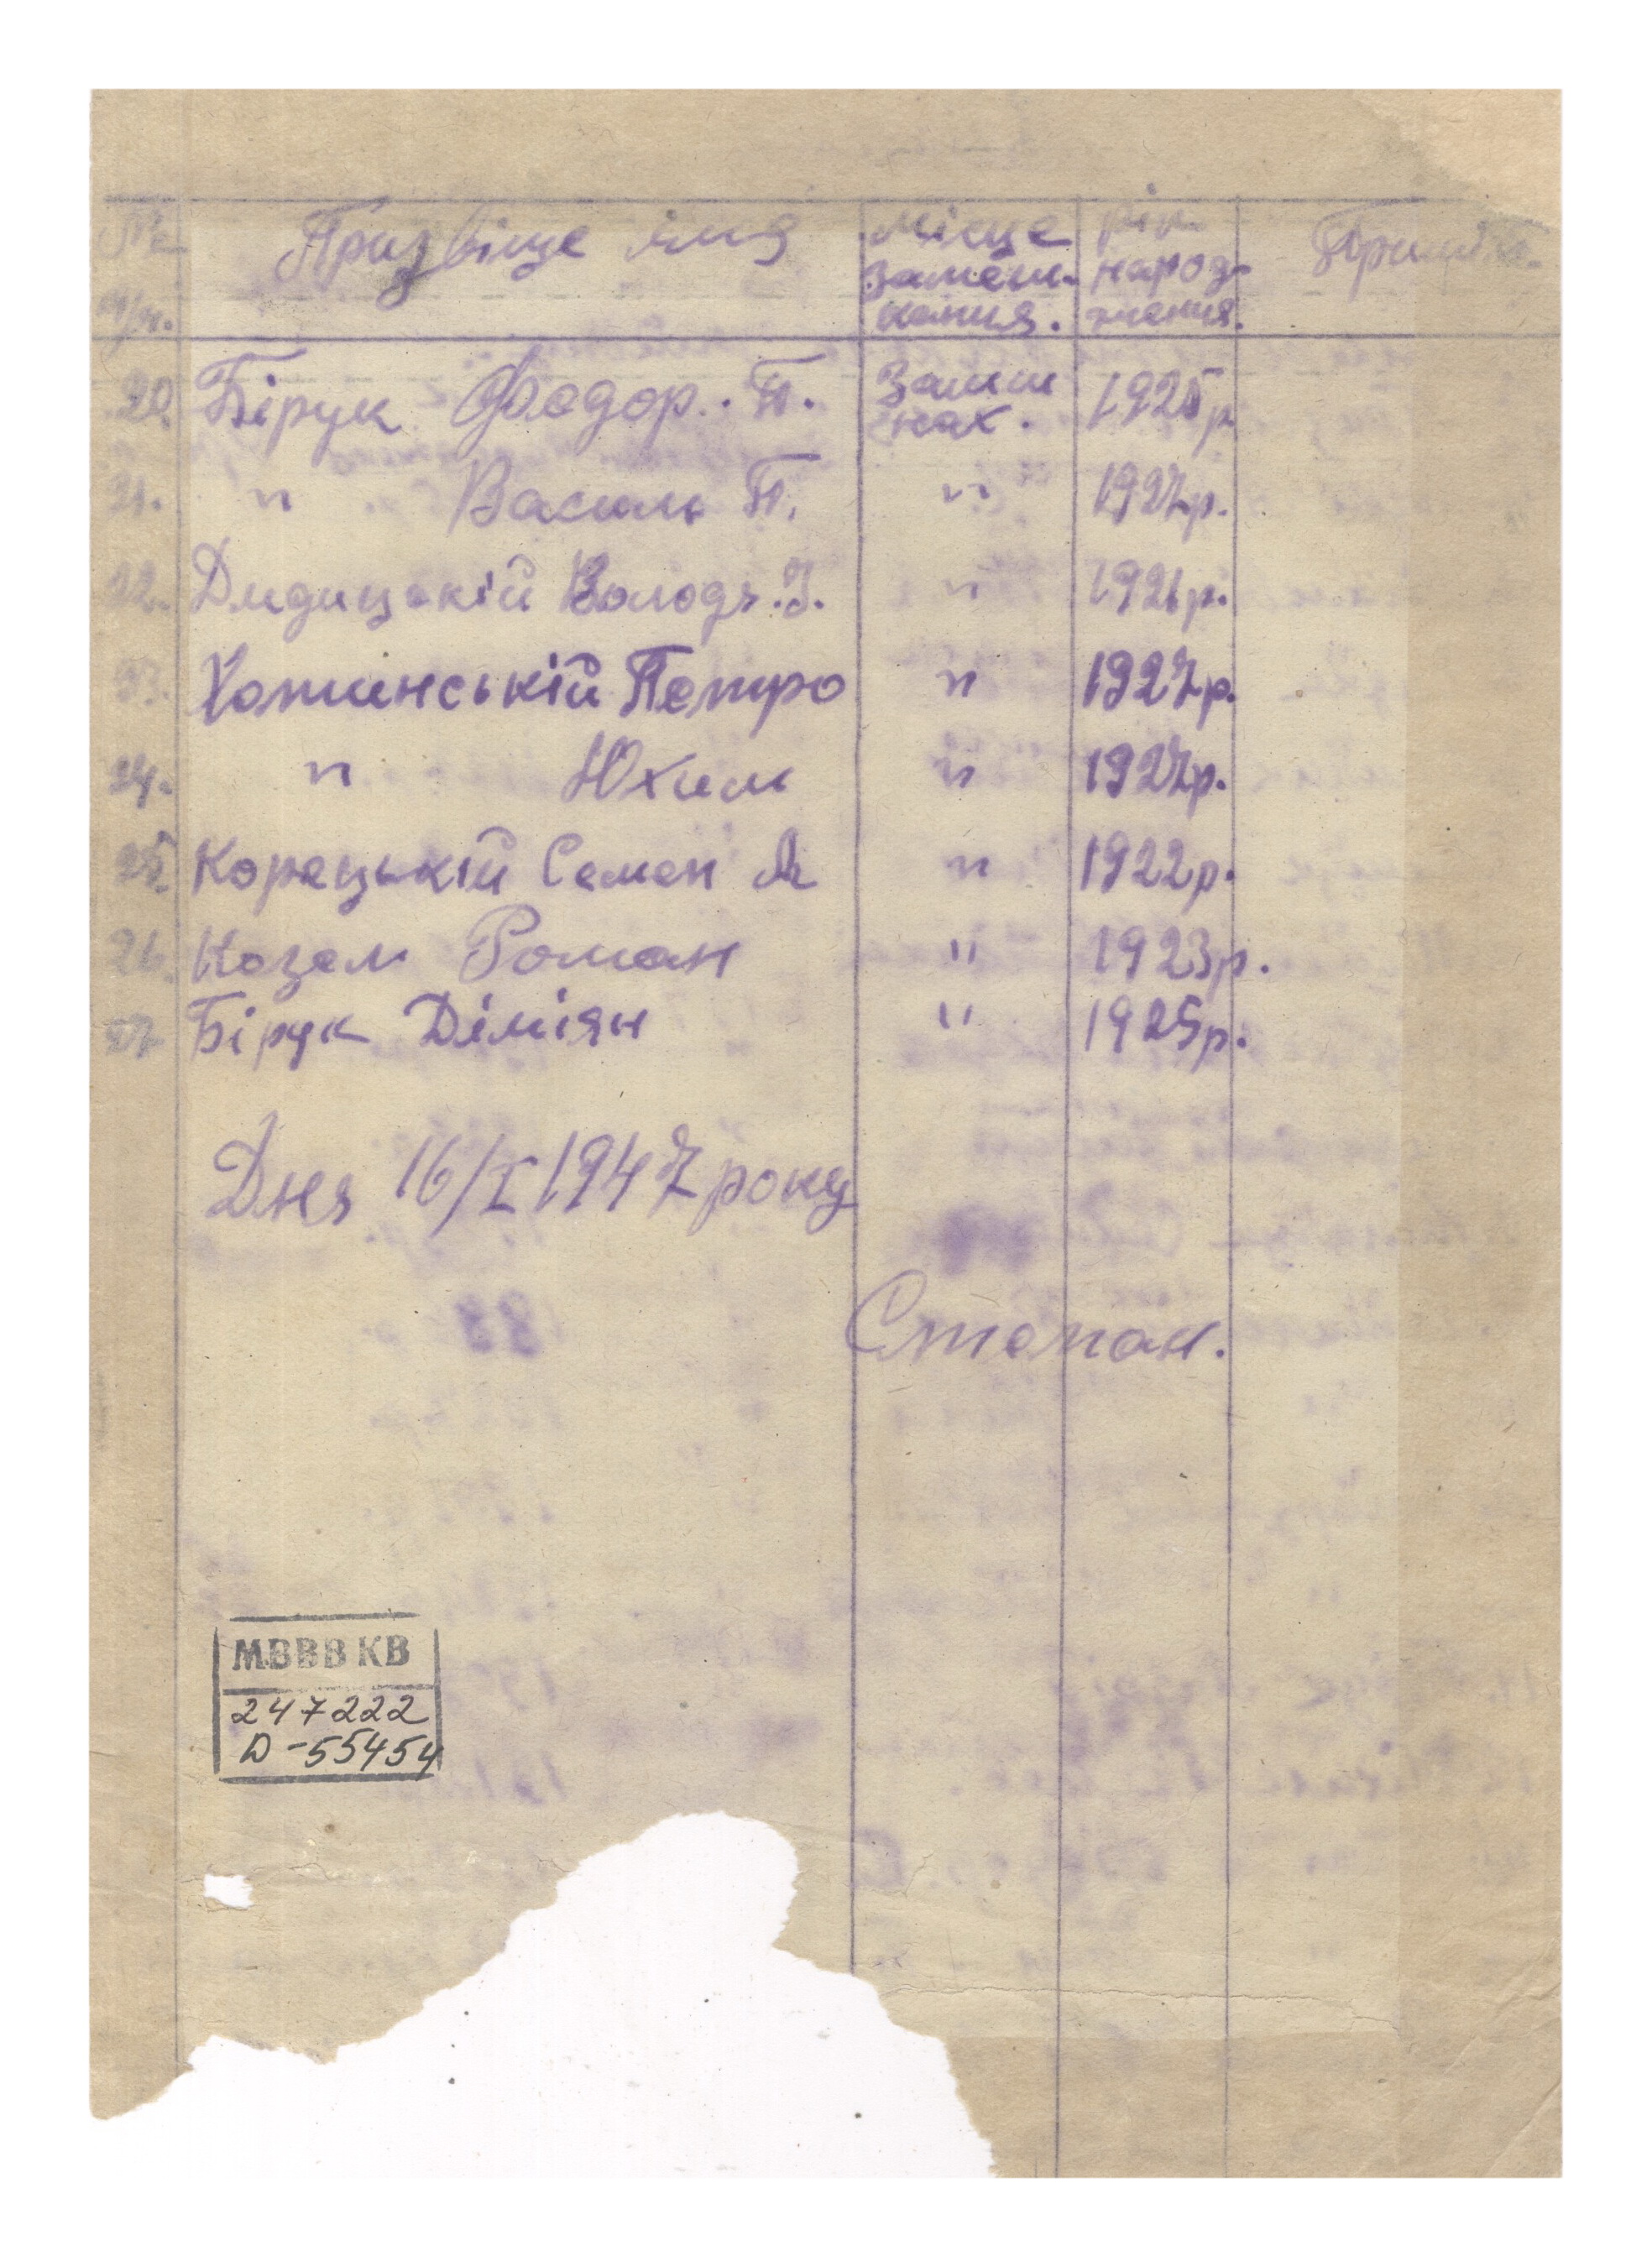 № Призвіще імя місце рік Приміт.
замеш- народ-
п/п. кання. ження.
20. Бірук Федор. П. Замш 1925р
ках.
21. " Василь П. " 1927р.
22. Дидицький Володь. І. " 1926р.
23. Хотинській Петро " 1927р.
24. " Юхим " 1927р.
25. Корецькій Семен " 1922р.
26. Козел Роман " 1923р.
27. Бірук Діміян " 1925р.
Дня 16/I 1947 року
Степан.
МВВВ КВ
247222
D-55454